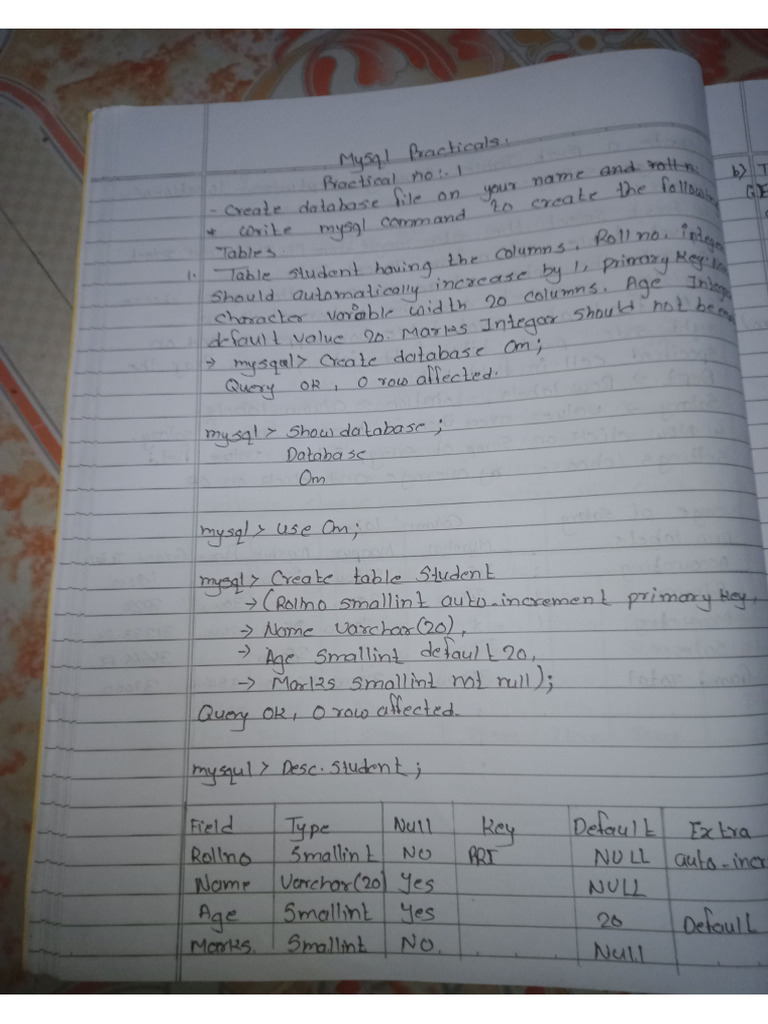 Mysql Practicals.
Practical no:- 1
- Create database file on your name and roll n
* write mysql command to create the following
Tables.
1. Table student having the columns. Roll no. integ
should automatically increase by 1, primary key.
character variable width 20 columns. Age Integ
default value 20. Marks Integar should not be
→ mysqal> Create database Om;
Query ok, 0 row affected.
mysql > Show database;
Database
Om
mysql> use Om;
mysql> Create table Student
→ (Rollno smallint auto-increment primary key,
→ Name varchar(20),
→ Age smallint default 20,
→ Marks smallint not null);
Query ok, 0 row affected.
mysqul > Desc. Student;
Field Type Null Key Default Extra
Rollno Smallint NO PRI NULL auto-incr
Name Varchar(20) Yes NULL
Age Smallint Yes 20 Defoull
Marks. Smallint No. Null
b) T